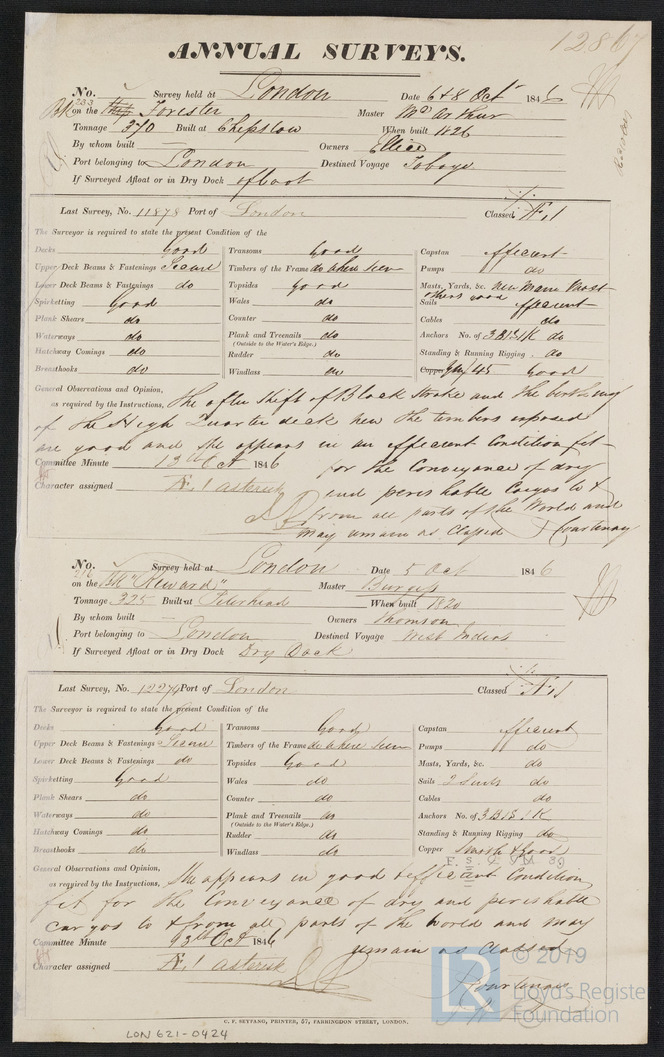 12867
ANNUAL SURVEYS.
No. 233 Survey held at London Date 6 & 8 Octr 1846
Bk on the Ship Forester Master McArthur
Tonnage 370 Built at Chepstow When built 1826
By whom built Owners Ellice
Port belonging to London Destined Voyage Tobago
If Surveyed Afloat or in Dry Dock afloat
Last Survey, No. 11878 Port of London Classed Æ 1
The Surveyor is required to state the present Condition of the
Decks Good Transoms Good Capstan efficient
Upper Deck Beams & Fastenings Secure Timbers of the Frame as where seen Pumps do
Lower Deck Beams & Fastenings do Topsides good Masts, Yards, &c. new Main Mast others good
Spirketting Good Wales do Sails efficient
Plank Shears do Counter do Cables do
Waterways do Plank and Treenails do Anchors No. of 3 B 1 S 1 K do
(Outside to the Water's Edge.)
Hatchway Comings do Rudder do Standing & Running Rigging do
Breasthooks do Windlass do Copper 45 Good
General Observations and Opinion, as required by the Instructions, The after shift of Black Strake and the birthing
of the High Quarter deck new the timbers exposed
are good and she appears in an efficient Condition fit
Committee Minute 13th Oct 1846 for the Conveyance of dry
Character assigned Æ 1 asterisk and perishable Cargos to &
from all parts of the World and
may remain as Classed J Courtenay
No. 216 Survey held at London Date 5 Oct 1846
on the Bk "Heward" Master Burgess
Tonnage 325 Built at Peterhead When built 1820
By whom built Owners Thomson
Port belonging to London Destined Voyage West Indies
If Surveyed Afloat or in Dry Dock Dry Dock
Last Survey, No. 12279 Port of London Classed Æ 1
The Surveyor is required to state the present Condition of the
Decks Good Transoms Good Capstan efficient
Upper Deck Beams & Fastenings Secure Timbers of the Frame as where seen Pumps do
Lower Deck Beams & Fastenings do Topsides Good Masts, Yards, &c. do
Spirketting Good Wales do Sails 2 Suits do
Plank Shears do Counter do Cables do
Waterways do Plank and Treenails do Anchors No. of 3 B 1 S 1 K
(Outside to the Water's Edge.)
Hatchway Comings do Rudder do Standing & Running Rigging do
Breasthooks do Windlass do Copper & Good
General Observations and Opinion, as required by the Instructions, She appears in good & efficient Condition
fit for the Conveyance of dry and perishable
cargos to & from all parts of the World and may
Committee Minute 13th Oct 1846 remain as Classed
Character assigned Æ 1 asterisk J Courtenay
© 2019
Lloyd's Register
Foundation
C. F. SEYFANG, PRINTER, 57, FARRINGDON STREET, LONDON.
LON 621-0424